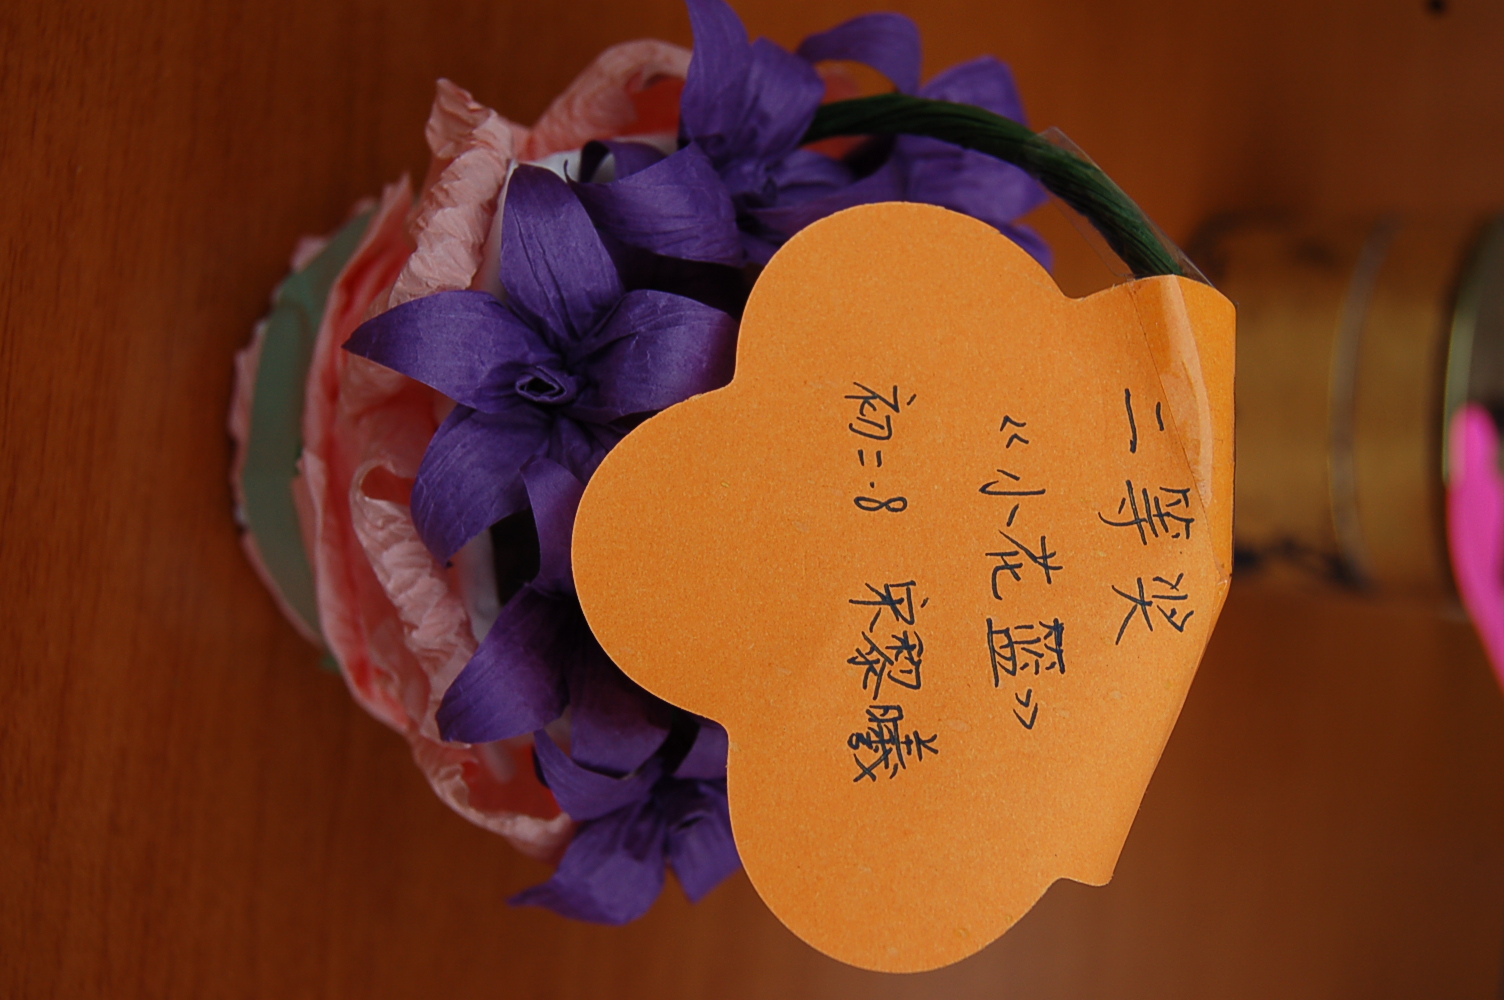 二等奖
《小花篮》
初二·8 宋黎曦